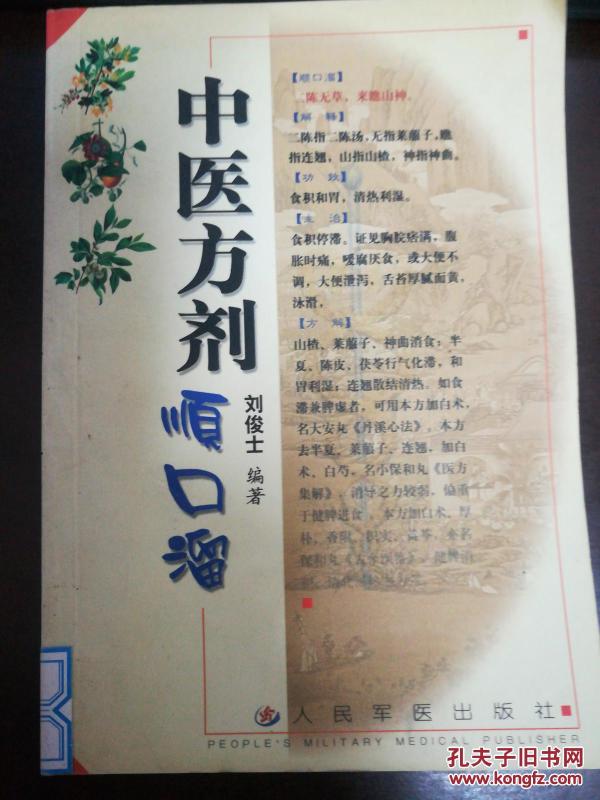 中医方剂
順口溜
刘俊士 编著
【顺口溜】
二陈无草，来瞧山神。
【解 释】
二陈指二陈汤，无指莱菔子，瞧
指连翘，山指山楂，神指神曲。
【功 效】
食积和胃，清热利湿。
【主 治】
食积停滞。证见胸脘痞满，腹
胀时痛，嗳腐厌食，或大便不
调，大便泄泻，舌苔厚腻面黄，
泳滑。
【方 解】
山楂、莱菔子、神曲消食；半
夏、陈皮、茯苓行气化滞，和
胃利湿；连翘散结清热。如食
滞兼脾虚者，可用本方加白术，
名大安丸《丹溪心法》。本方
去半夏、莱菔子、连翘，加白
术、白芍，名小保和丸《医方
集解》，消导之力较弱，偏重
于健脾进食，本方加白术、厚
朴、香附、枳实、黄芩，
保和丸
人民军医出版社
PEOPLE'S MILITARY MEDICAL PUBLISHER
孔夫子旧书网
www.kongfz.com